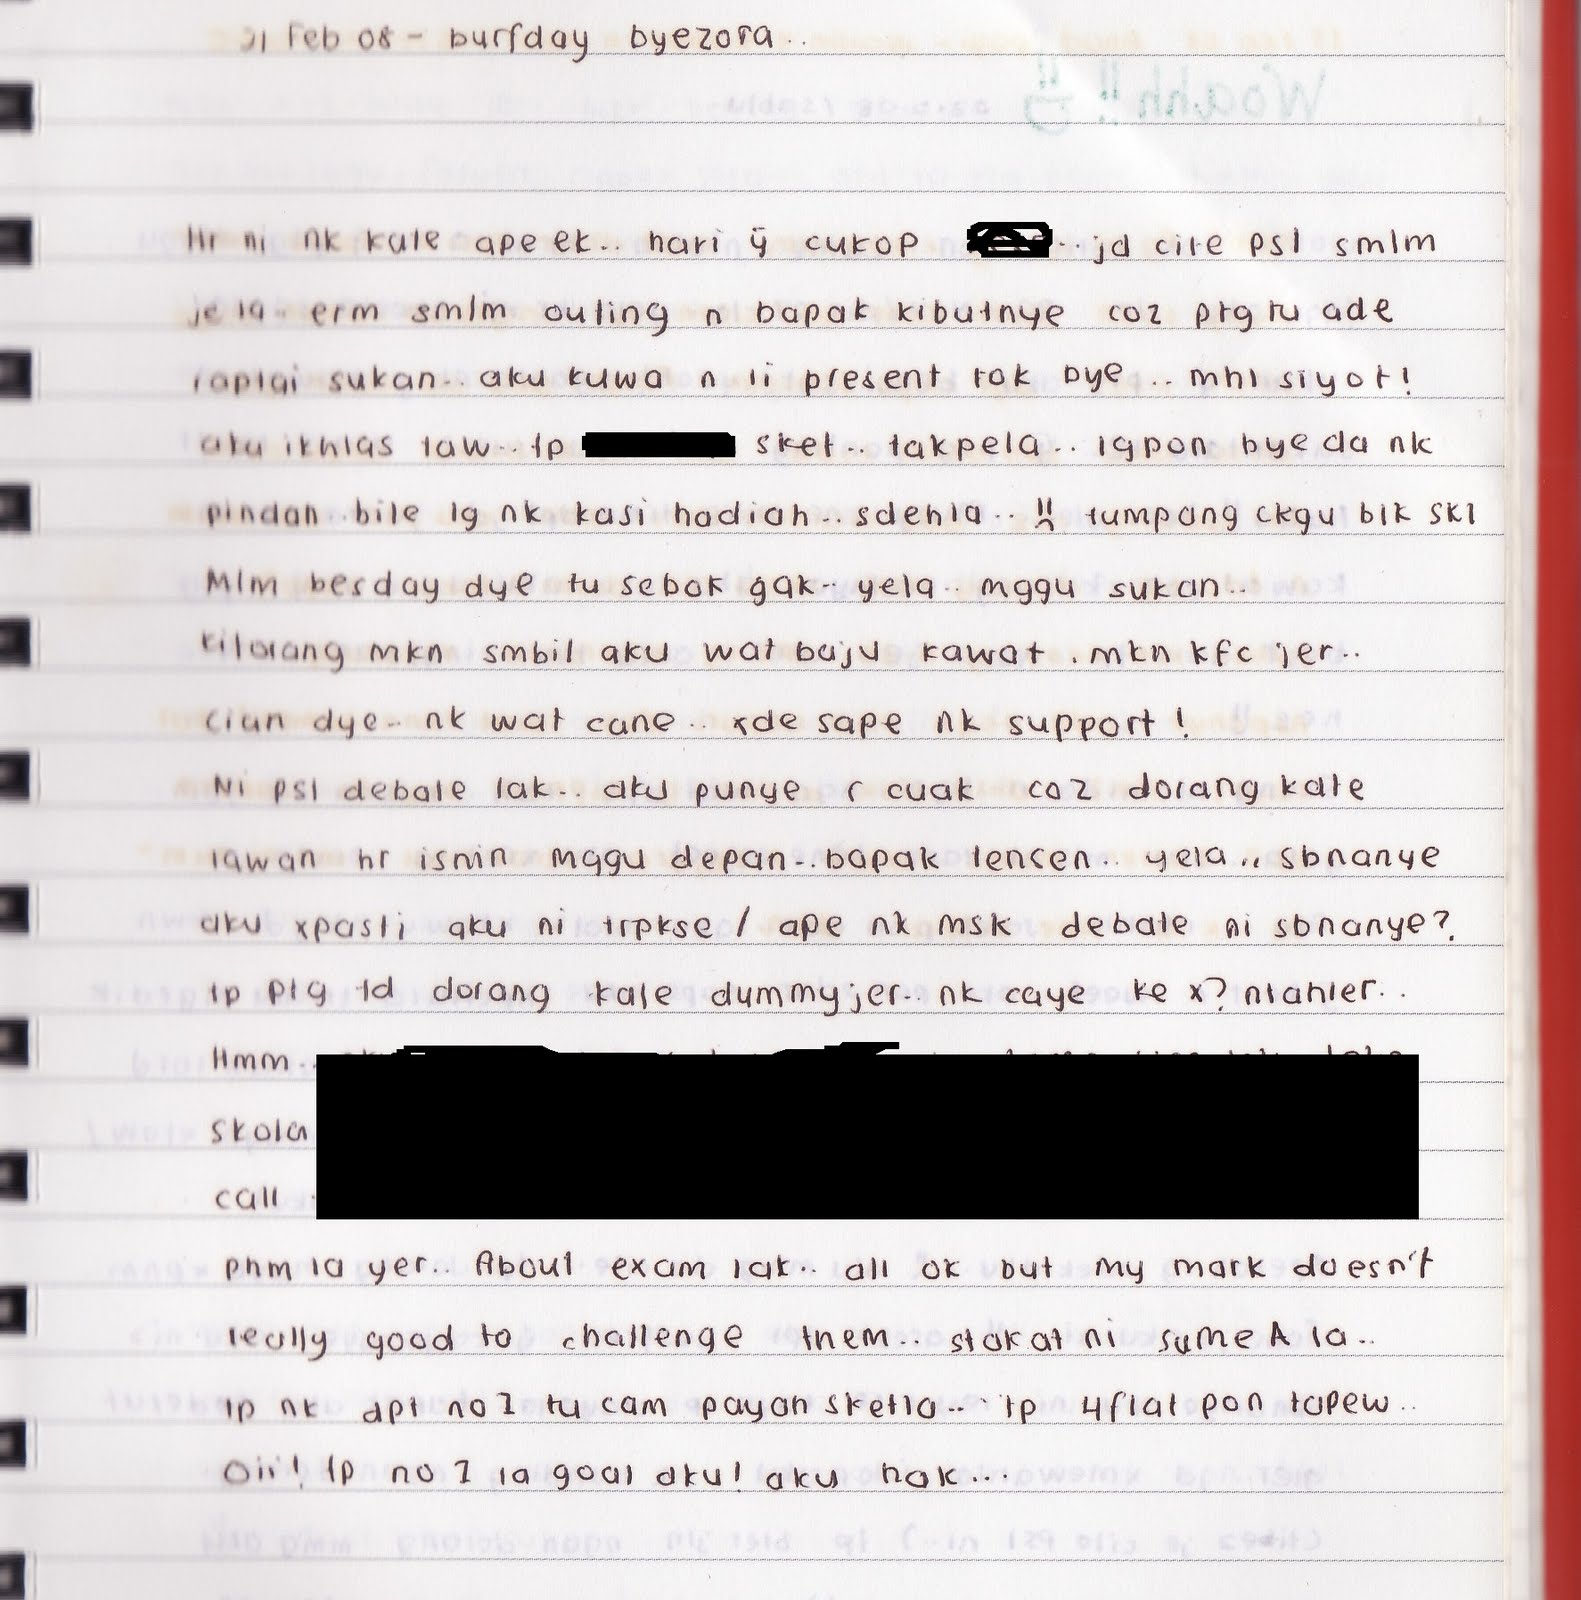 21 Feb 08 - burfday byezora..
Hr ni nk kate ape ek.. hari ÿ cukop ..jd cite psl smlm
je la. erm smlm outing n bapak kibutnye coz ptg tu ade
raptai sukan.. aku kuwa n li present tok bye.. mhl siyot!
aku ikhlas taw.. tp sket.. takpela.. lgpon bye da nk
pindah. bile lg nk kasi hadiah.. sdehla.. !! tumpang ckgu blk skl
Mlm besday dye tu sebok gak.. yela.. mggu sukan..
kilorang mkn smbil aku wat baju kawat. mkn kfc jer..
cian dye.. nk wat cane.. xde sape nk support!
Ni psl debate lak.. aku punye r cuak coz dorang kate
lawan hr isnin mggu depan.. bapak tencen.. yela.. sbnanye
aku xpasti aku ni trpkse / ape nk msk debate ni sbnanye?.
tp ptg td dorang kate dummy jer.. nk caye ke x? ntahler..
Hmm..
skola
call
phm la yer.. About exam lak.. all ok but my mark doesn't
really good to challenge them.. stakat ni sume A la..
tp nk dpt no 1 tu cam payah sketla.. tp 4flat pon tapew..
Oii! tp no 1 la goal aku! aku nak...